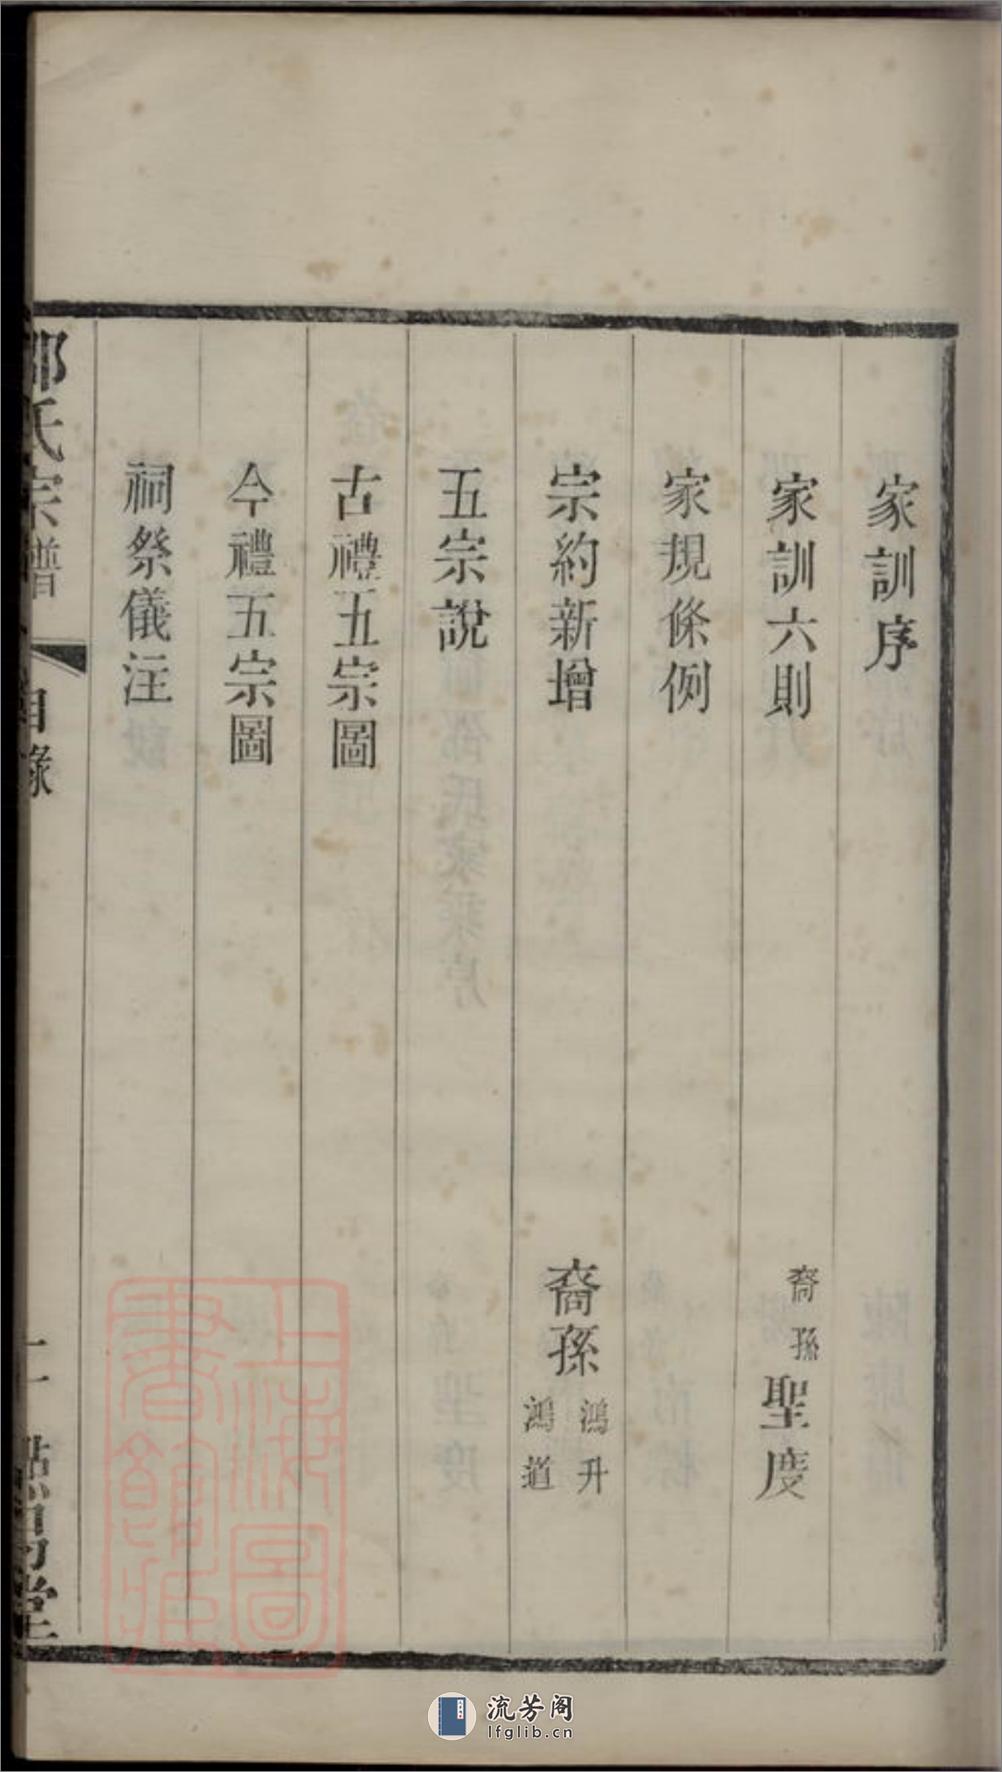 家訓序
家訓六則　裔孫聖度
家規條例
宗約新增　裔孫鴻升鴻道
五宗說
古禮五宗圖
今禮五宗圖
祠祭儀注
氏宗譜　目錄　二　點易堂
上海圖書館藏
流芳阁
lfglib.cn